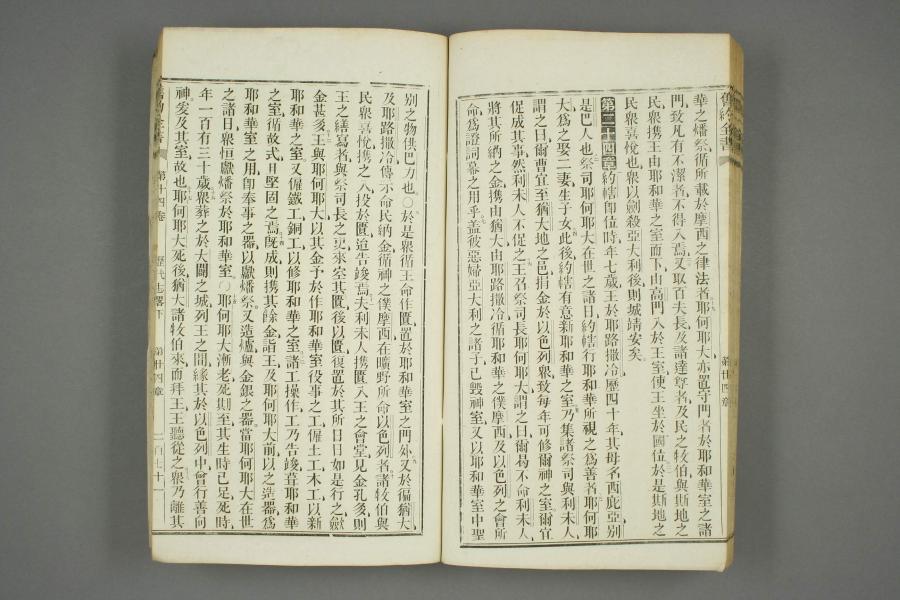 舊約全書
第廿四章
華之燔祭循所載於摩西之律法者耶何耶大亦置守門者於耶和華室之諸
門致凡有不潔者不得入焉又取百夫長及諸達尊者及民之牧伯與斯地之
民衆携王由耶和華之室而下由高門入於王室使王坐於國位於是斯地之
民衆喜悅也衆以劍殺亞大利後則城靖安矣
第二十四章 約轄卽位時年七歲王於耶路撒冷歷四十年其母名西庇亞別
是巴人也祭司耶何耶大在世之諸日約轄行耶和華所視之爲善者耶何耶
大爲之娶二妻生子女此後約轄有意新耶和華之室乃集諸祭司與利未人
謂之曰爾曹宜至猶大地之邑捐金於以色列衆致每年可修爾神之室爾宜
促成其事然利未人不促之王召祭司長耶何耶大謂之曰爾曷不命利未人
將其所納之金携由猶大由耶路撒冷循耶和華之僕摩西及以色列之會所
命爲證詞幕之用乎蓋彼惡婦亞大利之諸子已毀神室又以耶和華室中聖
別之物供巴力也〇於是衆循王命作匱置於耶和華室之門外又於徧猶大
及耶路撒冷傳示命民納金循神之僕摩西在曠野所命以色列者諸牧伯與
民衆喜悅携之入投於匱迨告竣焉夫利未人携匱入王之會堂見金孔多則
王之繕寫者與祭司長之吏來空其匱後以匱復置於其所日日如是行之斂
金甚多王與耶何耶大以其金予於作耶和華室役事之工僱土工木工以新
耶和華之室又僱鐵工銅工以修耶和華之室諸工操作工乃告竣葺耶和華
之室循故式且堅固之焉旣成則携其餘金詣王及耶何耶大前以之造器爲
耶和華室之用卽奉事之器以獻燔祭又造爐與金銀之器當耶何耶大在世
之諸日衆恒獻燔祭於耶和華室〇耶何耶大漸老死期至其生時已足死時
年一百有三十歲衆葬之於大闢之城列王之間緣其於以色列中曾行善向
神爰及其室故也耶何耶大死後猶大諸牧伯來而拜王王聽從之衆乃離其
第十四卷
歷代志畧下
第廿四章
二百七十一